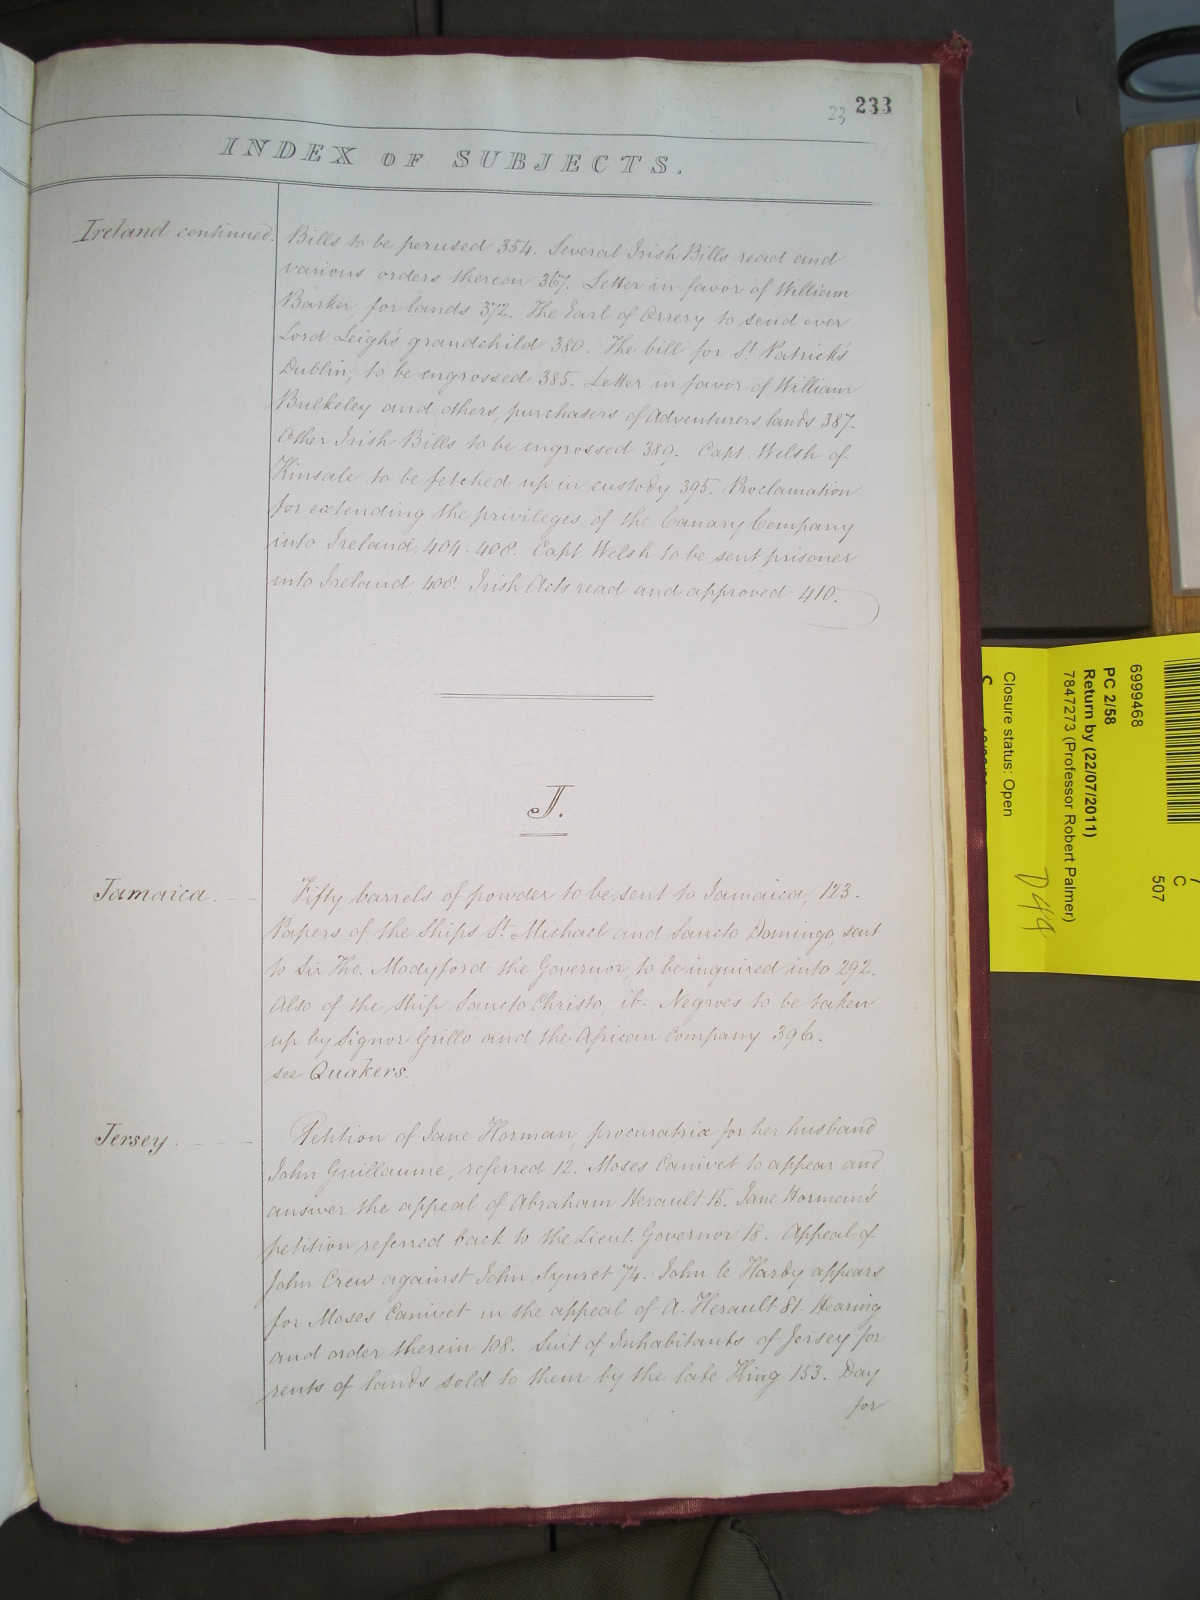 23 233
INDEX OF SUBJECTS.
Ireland continued. Bills to be perused 354. Several Irish Bills read and
various orders thereon 367. Letter in favor of William
Barker, for lands 372. The Earl of Orrery to send over
Lord Leigh's grandchild 380. The bill for St. Patrick's
Dublin, to be engrossed 385. Letter in favor of William
Bulkeley and others, purchasers of Adventurers lands 387.
Other Irish Bills to be engrossed 389. Capt. Welsh of
Kinsale to be fetched up in custody 395. Proclamation
for extending the privileges of the Canary Company
into Ireland, 404. 408. Capt. Welsh to be sent prisoner
into Ireland, 408. Irish Acts read and approved 410.
J.
Jamaica. Fifty barrels of powder to be sent to Jamaica, 123.
Papers of the Ships St. Michael and Sancto Domingo, sent
to Sir Tho. Modyford the Governor, to be inquired into 292.
Also of the Ship Sancto Christo, ib. Negroes to be taken
up by Signor Grillo and the African Company 396.
see Quakers.
Jersey. Petition of Jane Horman procuratrix for her husband
John Guillaume, referred 12. Moses Canivet to appear and
answer the appeal of Abraham Herault 15. Jane Horman's
petition referred back to the Lieut. Governor 18. Appeal of
John Crew against John Syuret 74. John le Hardy appears
for Moses Canivet in the appeal of A. Herault 81. Hearing
and order therein 108. Suit of Inhabitants of Jersey for
rents of lands sold to them by the late King 153. Day
for
6999468
PC 2/58
Return by (22/07/2011)
7847273 (Professor Robert Palmer)
Closure status: Open
C
507
D49